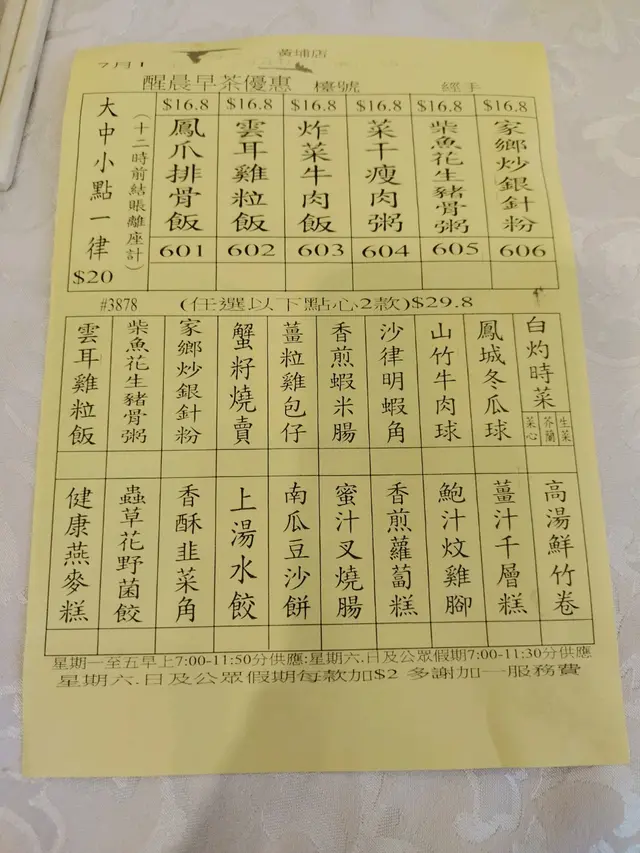 黃埔店
7月1
醒晨早茶優惠 檯號 經手
大中小點一律 $20
(十二時前結賬離座計)
$16.8 $16.8 $16.8 $16.8 $16.8 $16.8
鳳爪排骨飯
雲耳雞粒飯
炸菜牛肉飯
菜干瘦肉粥
柴魚花生豬骨粥
家鄉炒銀針粉
601 602 603 604 605 606
#3878 (任選以下點心2款)$29.8
雲耳雞粒飯
柴魚花生豬骨粥
家鄉炒銀針粉
蟹籽燒賣
薑粒雞包仔
香煎蝦米腸
沙律明蝦角
山竹牛肉球
鳳城冬瓜球
白灼時菜
菜心 芥蘭 生菜
健康燕麥糕
蟲草花野菌餃
香酥韭菜角
上湯水餃
南瓜豆沙餅
蜜汁叉燒腸
香煎蘿蔔糕
鮑汁炆雞腳
薑汁千層糕
高湯鮮竹卷
星期一至五早上7:00-11:50分供應:星期六.日及公眾假期7:00-11:30分供應
星期六.日及公眾假期每款加$2 多謝加一服務費